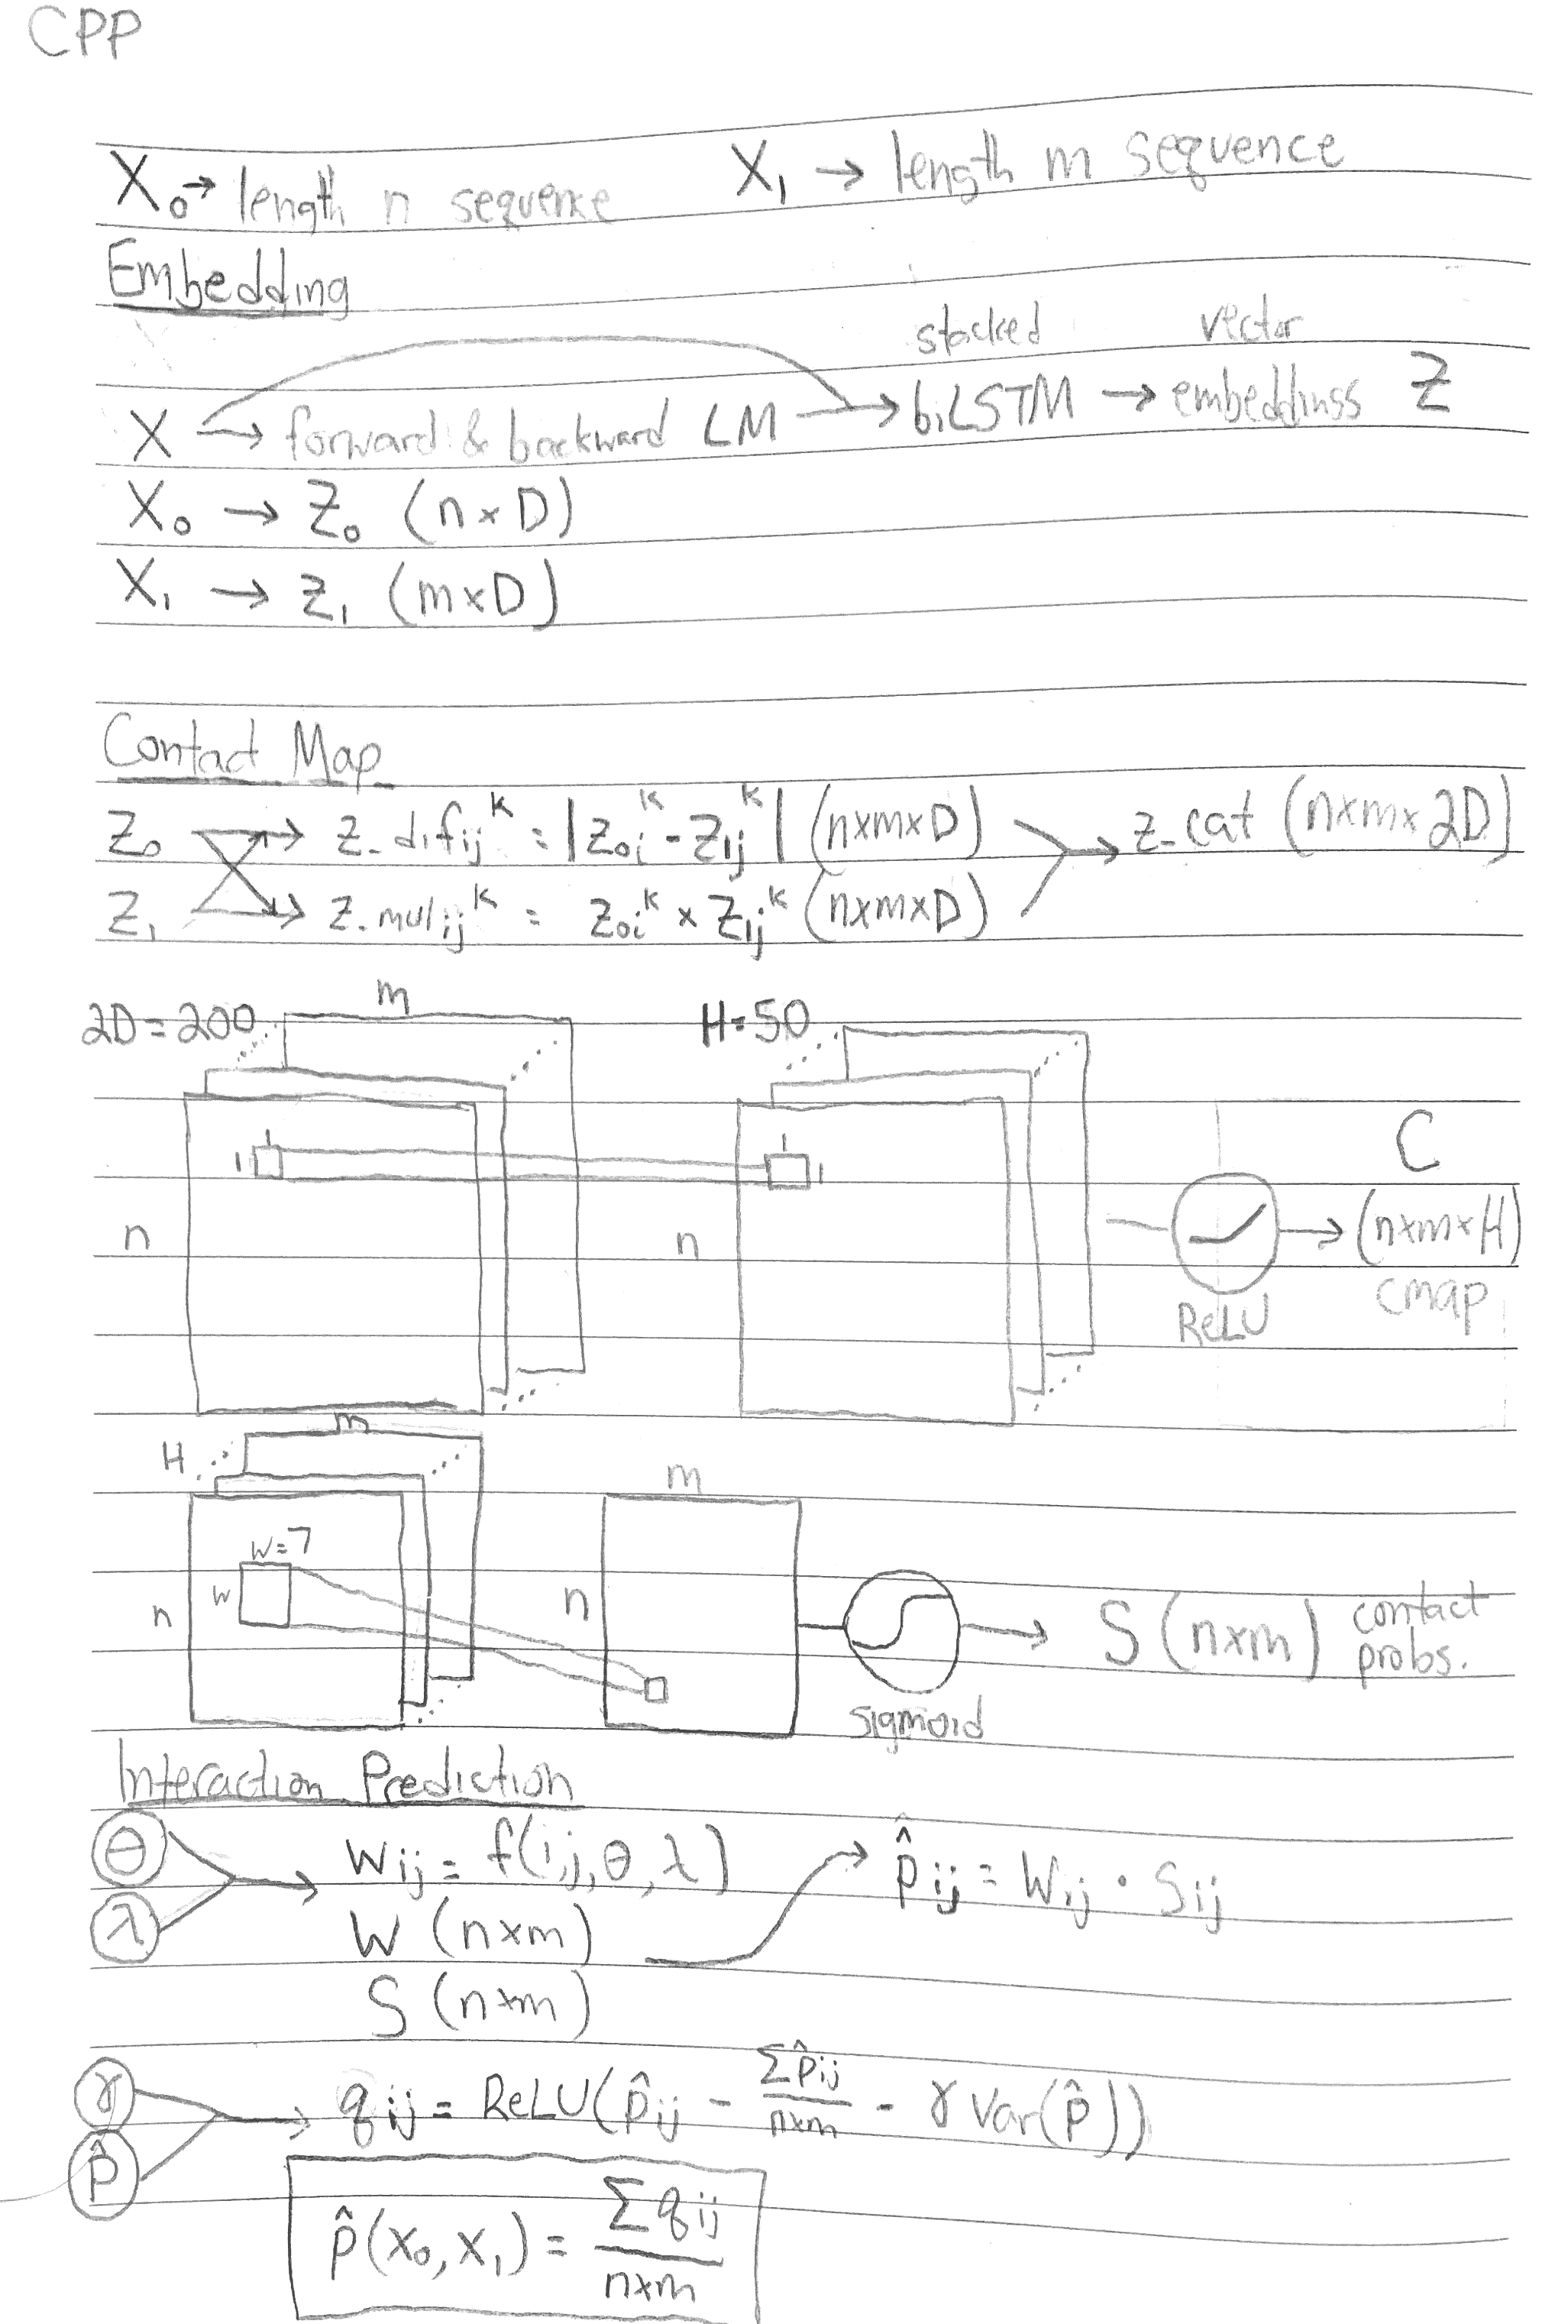 CPP
X₀ → length n sequence X₁ → length m sequence
Embedding
stacked vector
X → forward & backward LM → biLSTM → embeddings Z
X₀ → Z₀ (n×D)
X₁ → Z₁ (m×D)
Contact Map
Z₀ → z_dif_ij^k = |z_0i^k - z_1j^k| (n×m×D) → z_cat (n×m×2D)
Z₁ → z_mul_ij^k = z_0i^k × z_1j^k (n×m×D)
2D=200 m H=50
1 1
1 1
C
n n (n×m×H)
ReLU cmap
H m
m
w=7
w
n n S (n×m) contact probs.
sigmoid
Interaction Prediction
θ w_ij = f(i,j,θ,λ) → p̂_ij = W_ij · S_ij
λ W (n×m)
S (n×m)
γ q_ij = ReLU(p̂_ij - Σp̂_ij / n×m - γ Var(p̂))
p̂
p̂(x₀,x₁) = Σq_ij / n×m